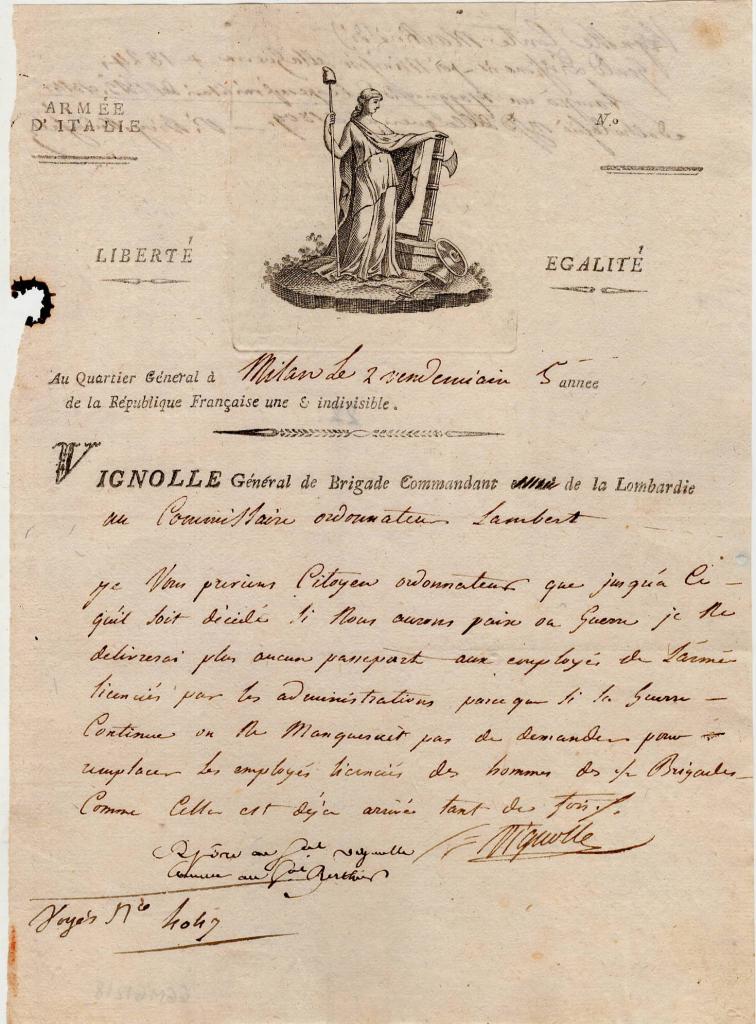 ARMÉE
D'ITALIE
N.o
LIBERTÉ
EGALITÉ
Au Quartier Général à Milan le 2 vendemiair 5 année
de la République Française une & indivisible.
VIGNOLLE Général de Brigade Commandant de la Lombardie
au Commissaire ordonnateur Lambert
je Vous previens Citoyen ordonnateur que jusqu'a Ce
qu'il soit décidé si Nous aurons paix ou Guerre je Ne
delivrerai plus aucun passeport aux employés de L'armée
licenciés par les administrations parceque si la Guerre
Continue on Ne Manquerait pas de demander pour
remplacer les employés licenciés des hommes des 1/2 Brigades
Comme Cella est déja arrivé tant de fois./.
Vignolle
au Gal Vignolle
comme au Gal Berthier